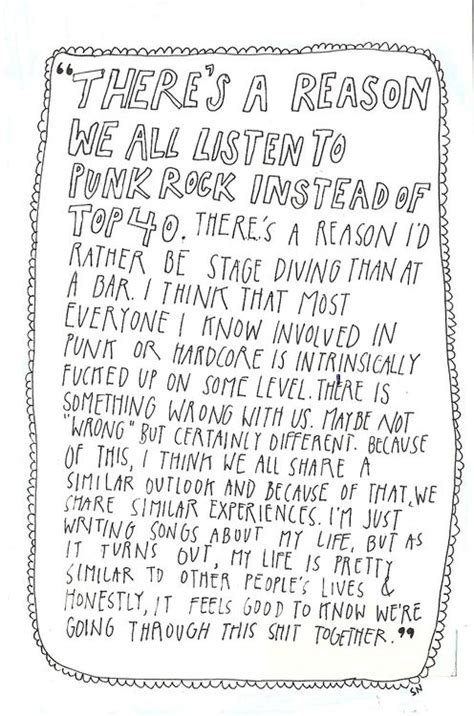 “THERE'S A REASON
WE ALL LISTEN TO
PUNK ROCK INSTEAD OF
TOP 40. THERE'S A REASON I'D
RATHER BE STAGE DIVING THAN AT
A BAR. I THINK THAT MOST
EVERYONE I KNOW INVOLVED IN
PUNK OR HARDCORE IS INTRINSICALLY
FUCKED UP ON SOME LEVEL. THERE IS
SOMETHING WRONG WITH US. MAYBE NOT
"WRONG" BUT CERTAINLY DIFFERENT. BECAUSE
OF THIS, I THINK WE ALL SHARE A
SIMILAR OUTLOOK AND BECAUSE OF THAT, WE
SHARE SIMILAR EXPERIENCES. I'M JUST
WRITING SONGS ABOUT MY LIFE, BUT AS
IT TURNS OUT, MY LIFE IS PRETTY
SIMILAR TO OTHER PEOPLE'S LIVES &
HONESTLY, IT FEELS GOOD TO KNOW WE'RE
GOING THROUGH THIS SHIT TOGETHER.”
SN